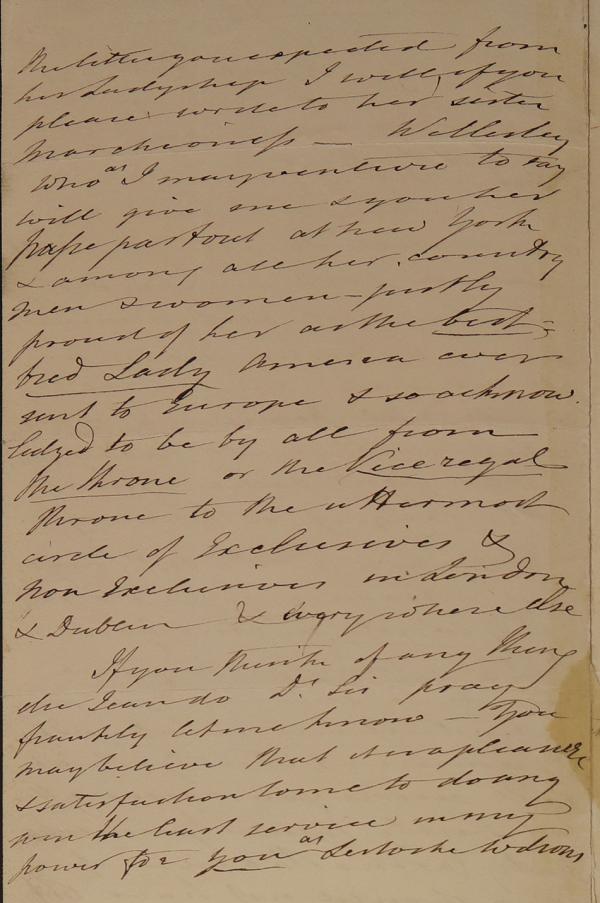 the letter you expected from
her Ladyship I will, if you
please write to her sister
Marchioness — Wellesley
who as I may venture to say
will give me & you her
passe partout at new York
& among all her country
men & women — justly
proud of her as the best-
bred Lady America ever
sent to Europe & so acknow
ledged to be by all from
the throne or the Vice regal
throne to the uttermost
circle of Exclusives &
non Exclusives in London
& Dublin & every where else
If you think of any thing
else I can do Dr Sir pray
frankly let me know — You
may believe that it is a pleasure
& satisfaction to me to do any
even the least service in my
power for you as